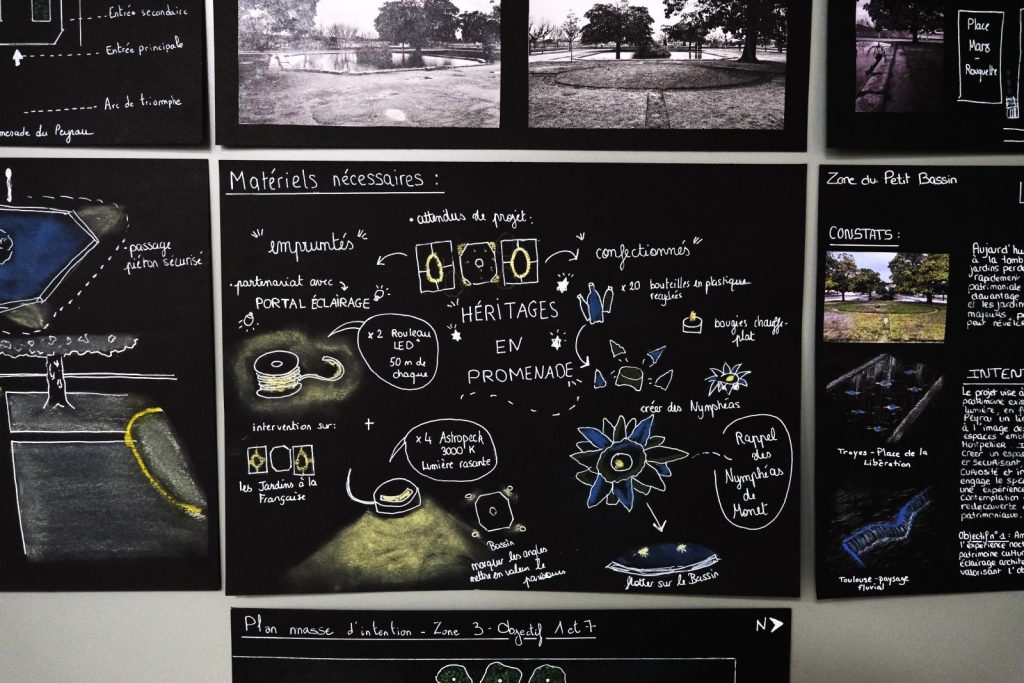 Entrée secondaire
Entrée principale
Arc de triomphe
Promenade du Peyrou
Place
Mars
Rouquette
passage
piéton sécurisé
Matériels nécessaires :
• attendus de projet :
"empruntés"
"confectionnés"
• partenariat avec
PORTAL ÉCLAIRAGE
HÉRITAGES
EN
PROMENADE
x 2 Rouleau
LED
50 m de
chaque
x 20 bouteilles en plastique
recyclées
bougies chauffe-
plat
créer des Nymphéas
intervention sur :
+
les Jardins à la
Française
x 4 Astropeck
3000°K
Lumière rasante
Bassin
marquer les angles
mettre en valeur le
parcours
Rappel
des
Nymphéas
de
Monet
flotter sur le Bassin
Zone du Petit Bassin
CONSTATS :
Aujourd'hu
à la tomb
jardins perde
rapidement
patrimoniale
davantage
et les jardin
majeurs, p
peut révéle
Troyes - Place de la
Libération
Toulouse - paysage
fluvial
INTENT
Le projet vise à
patrimoine exis
lumière, en f
Peyrou un li
à l'image de
espaces "emb
Montpellier. I
créer un espa
er sécurisant
curiosité et in
engage le spe
une expérience
contemplation
redécouverte
patrimoniaux.
Objectif n°1 : Am
l'expérience noct
patrimoine cultur
éclairage archite
valorisant l'ob
Plan masse d'intention - Zone 3 - Objectif 1 et 7
N